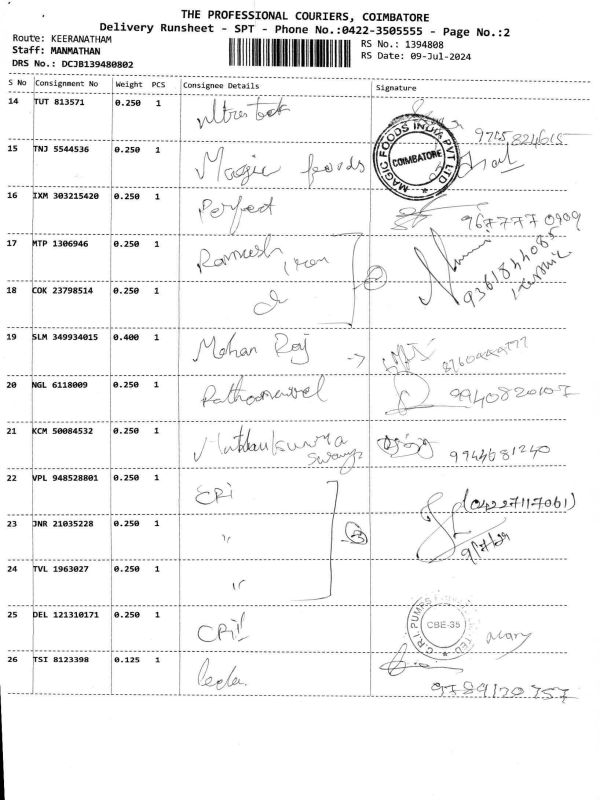 THE PROFESSIONAL COURIERS, COIMBATORE
Delivery Runsheet - SPT - Phone No.:0422-3505555 - Page No.:2
Route: KEERANATHAM
Staff: MANMATHAN
DRS No.: DCJB139480802
RS No.: 1394808
RS Date: 09-Jul-2024
S No Consignment No Weight PCS Consignee Details Signature
14 TUT 813571 0.250 1
15 TNJ 5544536 0.250 1 Magic foods
MAGIC FOODS INDIA PVT LTD COIMBATORE
16 IXM 303215420 0.250 1 Perfect
17 MTP 1306946 0.250 1 Ramesh
9361844085
18 COK 23798514 0.250 1
19 SLM 349934015 0.400 1 Mohan Raj ->
20 NGL 6118009 0.250 1 994082010-7
21 KCM 50084532 0.250 1 9944681240
22 VPL 948528801 0.250 1 CRI (04227117061)
23 JNR 21035228 0.250 1 " 3 9/7/24
24 TVL 1963027 0.250 1 "
25 DEL 121310171 0.250 1 CRI
C.R.I. PUMPS LIMITED CBE-35
26 TSI 8123398 0.125 1
9789120757